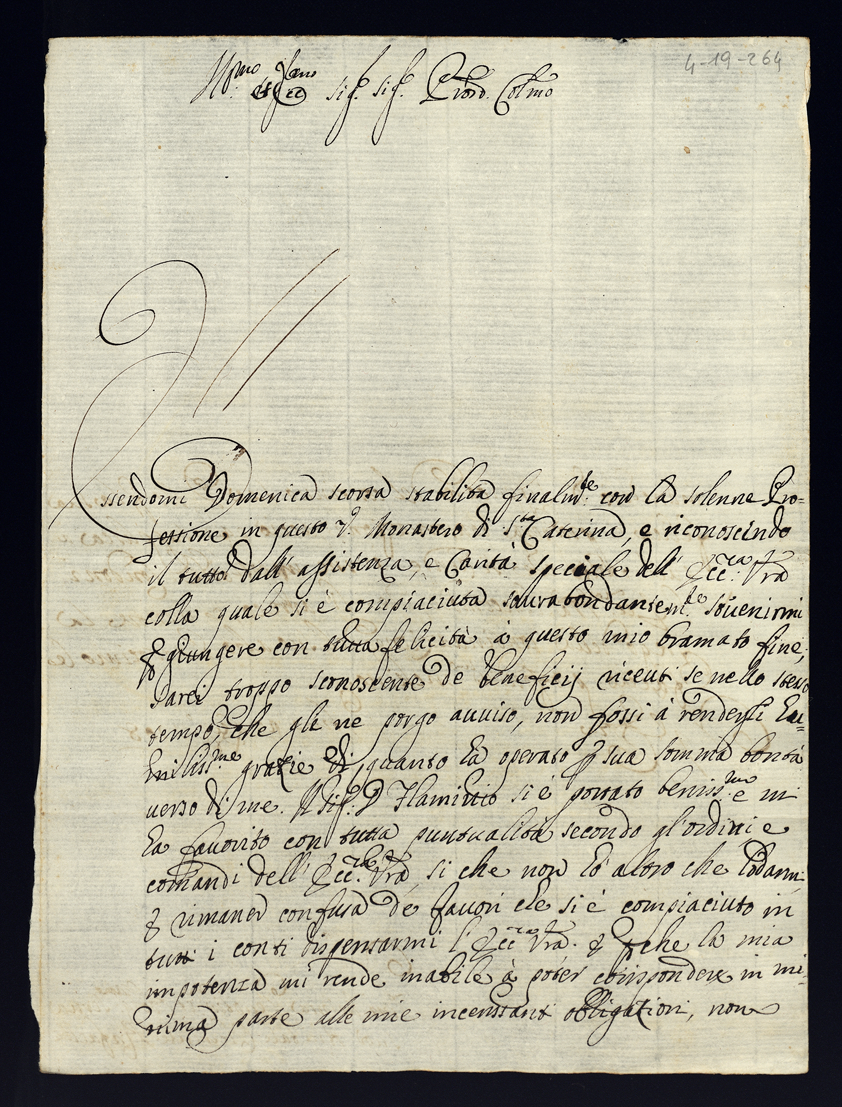 4-19-264
Ill.mo et Ecc.mo Sig.r Sig.r Pron. Col.mo
Essendomi Domenica scorsa stabilita finalm.te con la solenne Pro=
fessione in questo V. Monastero di S.ta Caterina, e riconoscindo
il tutto dall' assistenza, e Carità speciale dell' Ecc.za V.ra
colla quale si è compiaciuta sourabondantem.te souenirmi
p giungere con tutta felicità à questo mio bramato fine,
sarei troppo sconoscente de beneficij riceuti se nello stesso
tempo, che gli ne porgo auuiso, non fossi à renderli hu=
miliss.me grazie di quanto ha operato p sua somma bontà
uerso di me. Il Sig.r D Flaminio si è portato beniss.mo e mi
ha fauorito con tutta puntualità secondo gl'ordini e
comandi dell' Ecc.za V.ra si che non hò altro che lodarmi
& rimaner confusa de fauori che si è compiaciuto in
tutti i conti dispensarmi l'Ecc.za V.ra. & pche la mia
impotenza mi rende inabile à poter corispondere in mi=
nima parte alle mie incessanti obbligazioni, non